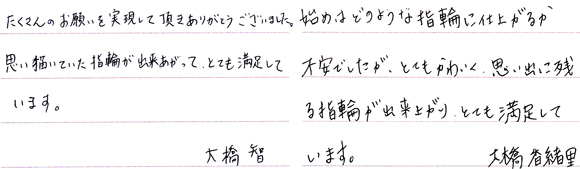 たくさんのお願いを実現して頂きありがとうございました。
思い描いていた指輪が出来あがって、とても満足して
います。
大橋 智
始めはどのような指輪に仕上がるか
不安でしたが、とてもかわいく、思い出に残
る指輪が出来上がり、とても満足して
います。
大橋 香緒里